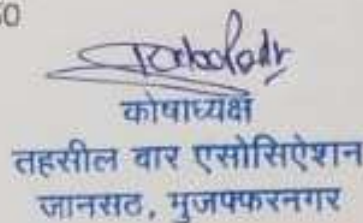 कोषाध्यक्ष
तहसील वार एसोसिऐशन
जानसठ, मुजफ्फरनगर